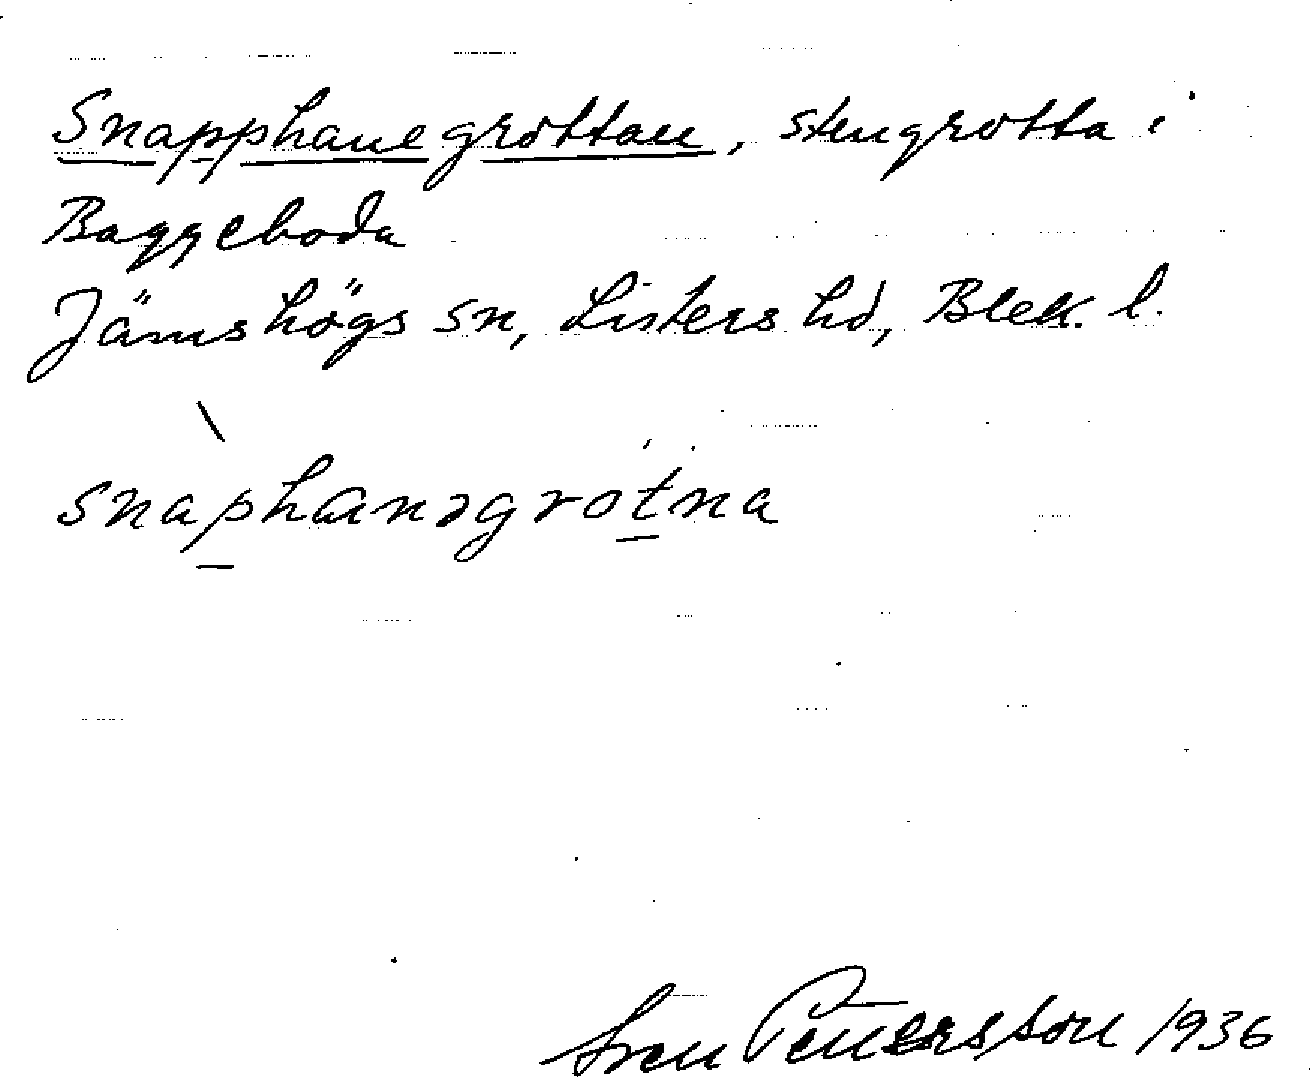 Snapphanegrottan, stengrotta i
Baggeboda
Jämshögs sn, Listers hd, Blek. l.
snaphanəgrotna
Sven Pettersson 1936